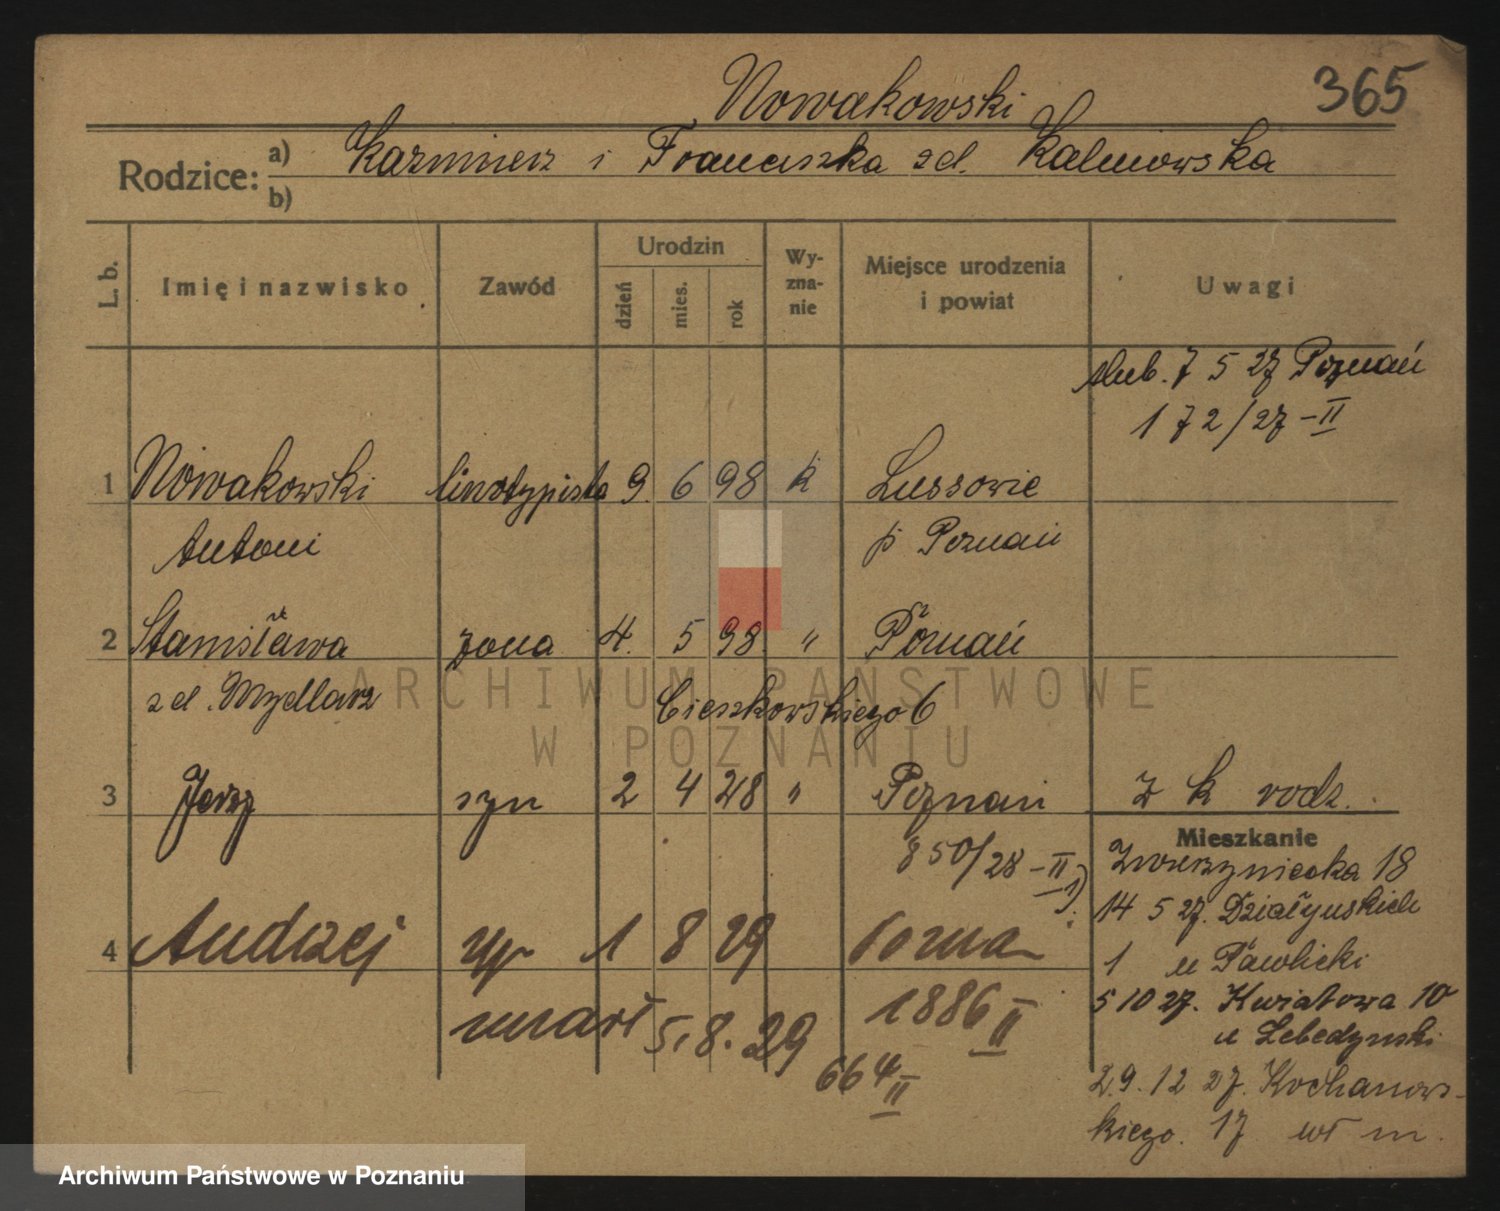 Nowakowski 365
Rodzice: a) Kazmierz i Franciszka zd. Kalinowska
b)
L. b. Imię i nazwisko Zawód Urodzin dzień mies. rok Wy-zna-nie Miejsce urodzenia i powiat Uwagi
ślub. 7 5 27 Poznań
172/27-II
1 Nowakowski linotypista 9 6 98 k Lussowie
Antoni p Poznań
2 Stanisława żona 4. 5 98 " Poznań
zd. Mydlarz Cieszkowskiego 6
3 Jerzy syn 2 4 28 " Poznań z k rodz.
850/28-II 1)
4 Andrzej syn 1 8 29 Pozna
umarł 5.8.29 1886 II
664 II
Mieszkanie
Zwierzyniecka 18
14 5 27. Działyńskich
1 u Pawlicki
5 10 27. Kwiatowa 10
u Lebedynski
29.12 27. Kochanows-
kiego. 17 wł m.
ARCHIWUM PAŃSTWOWE
W POZNANIU
Archiwum Państwowe w Poznaniu